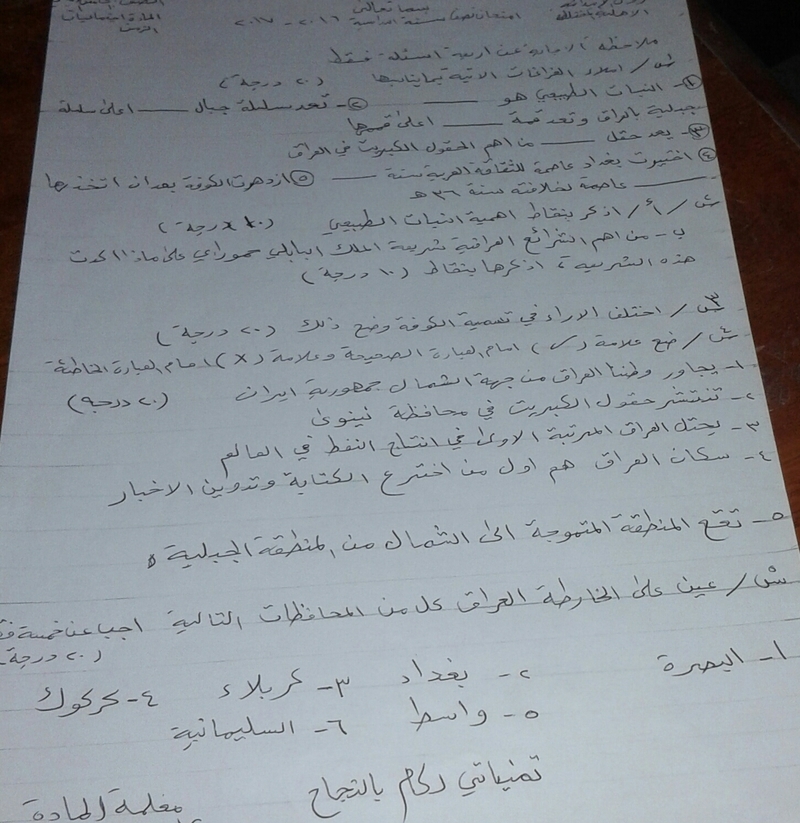 بسمه تعالى
امتحان نصف السنة الدراسية ٢٠١٦ - ٢٠١٧
ملاحظة الاجابة عن اربعة اسئلة فقط
س١/ املأ الفراغات الاتية بما يناسبها (٢٠ درجة)
١- النبات الطبيعي هو ــــــ ٢- تعد سلسلة جبال ــــــ اعلى سلسلة
جبلية بالعراق وتعد قمة ــــــ اعلى قممها
٣- يعد حقل ــــــ من اهم الحقول الكبريت في العراق
٤- اختيرت بغداد عاصمة للثقافة العربية سنة ــــــ ٥- ازدهرت الكوفة بعد ان اتخذها
ــــــ عاصمة لخلافته سنة ٣٦ هـ
س٢/ أ/ اذكر بنقاط اهمية النبات الطبيعي (١٠ درجة)
ب- من اهم الشرائع العراقية شريعة الملك البابلي حمورابي على ماذا اكدت
هذه الشريعة، اذكرها بنقاط (١٠ درجة)
س٣/ اختلف الاراء في تسمية الكوفة وضح ذلك (٢٠ درجة)
س٤/ ضع علامة (✓) امام العبارة الصحيحة وعلامة (X) امام العبارة الخاطئة
١- يجاور وطننا العراق من جهة الشمال جمهورية ايران (٢٠ درجة)
٢- تنتشر حقول الكبريت في محافظة نينوى
٣- يحتل العراق المرتبة الاولى في انتاج النفط في العالم
٤- سكان العراق هم اول من اخترع الكتابة وتدوين الاخبار
٥- تقع المنطقة المتموجة الى الشمال من المنطقة الجبلية
س٥/ عين على الخارطة العراق كل من المحافظات التالية اجب عن خمسة
(٢٠ درجة
١- البصرة ٢- بغداد ٣- كربلاء ٤- كركوك
٥- واسط ٦- السليمانية
تمنياتي لكم بالنجاح
معلمة المادة